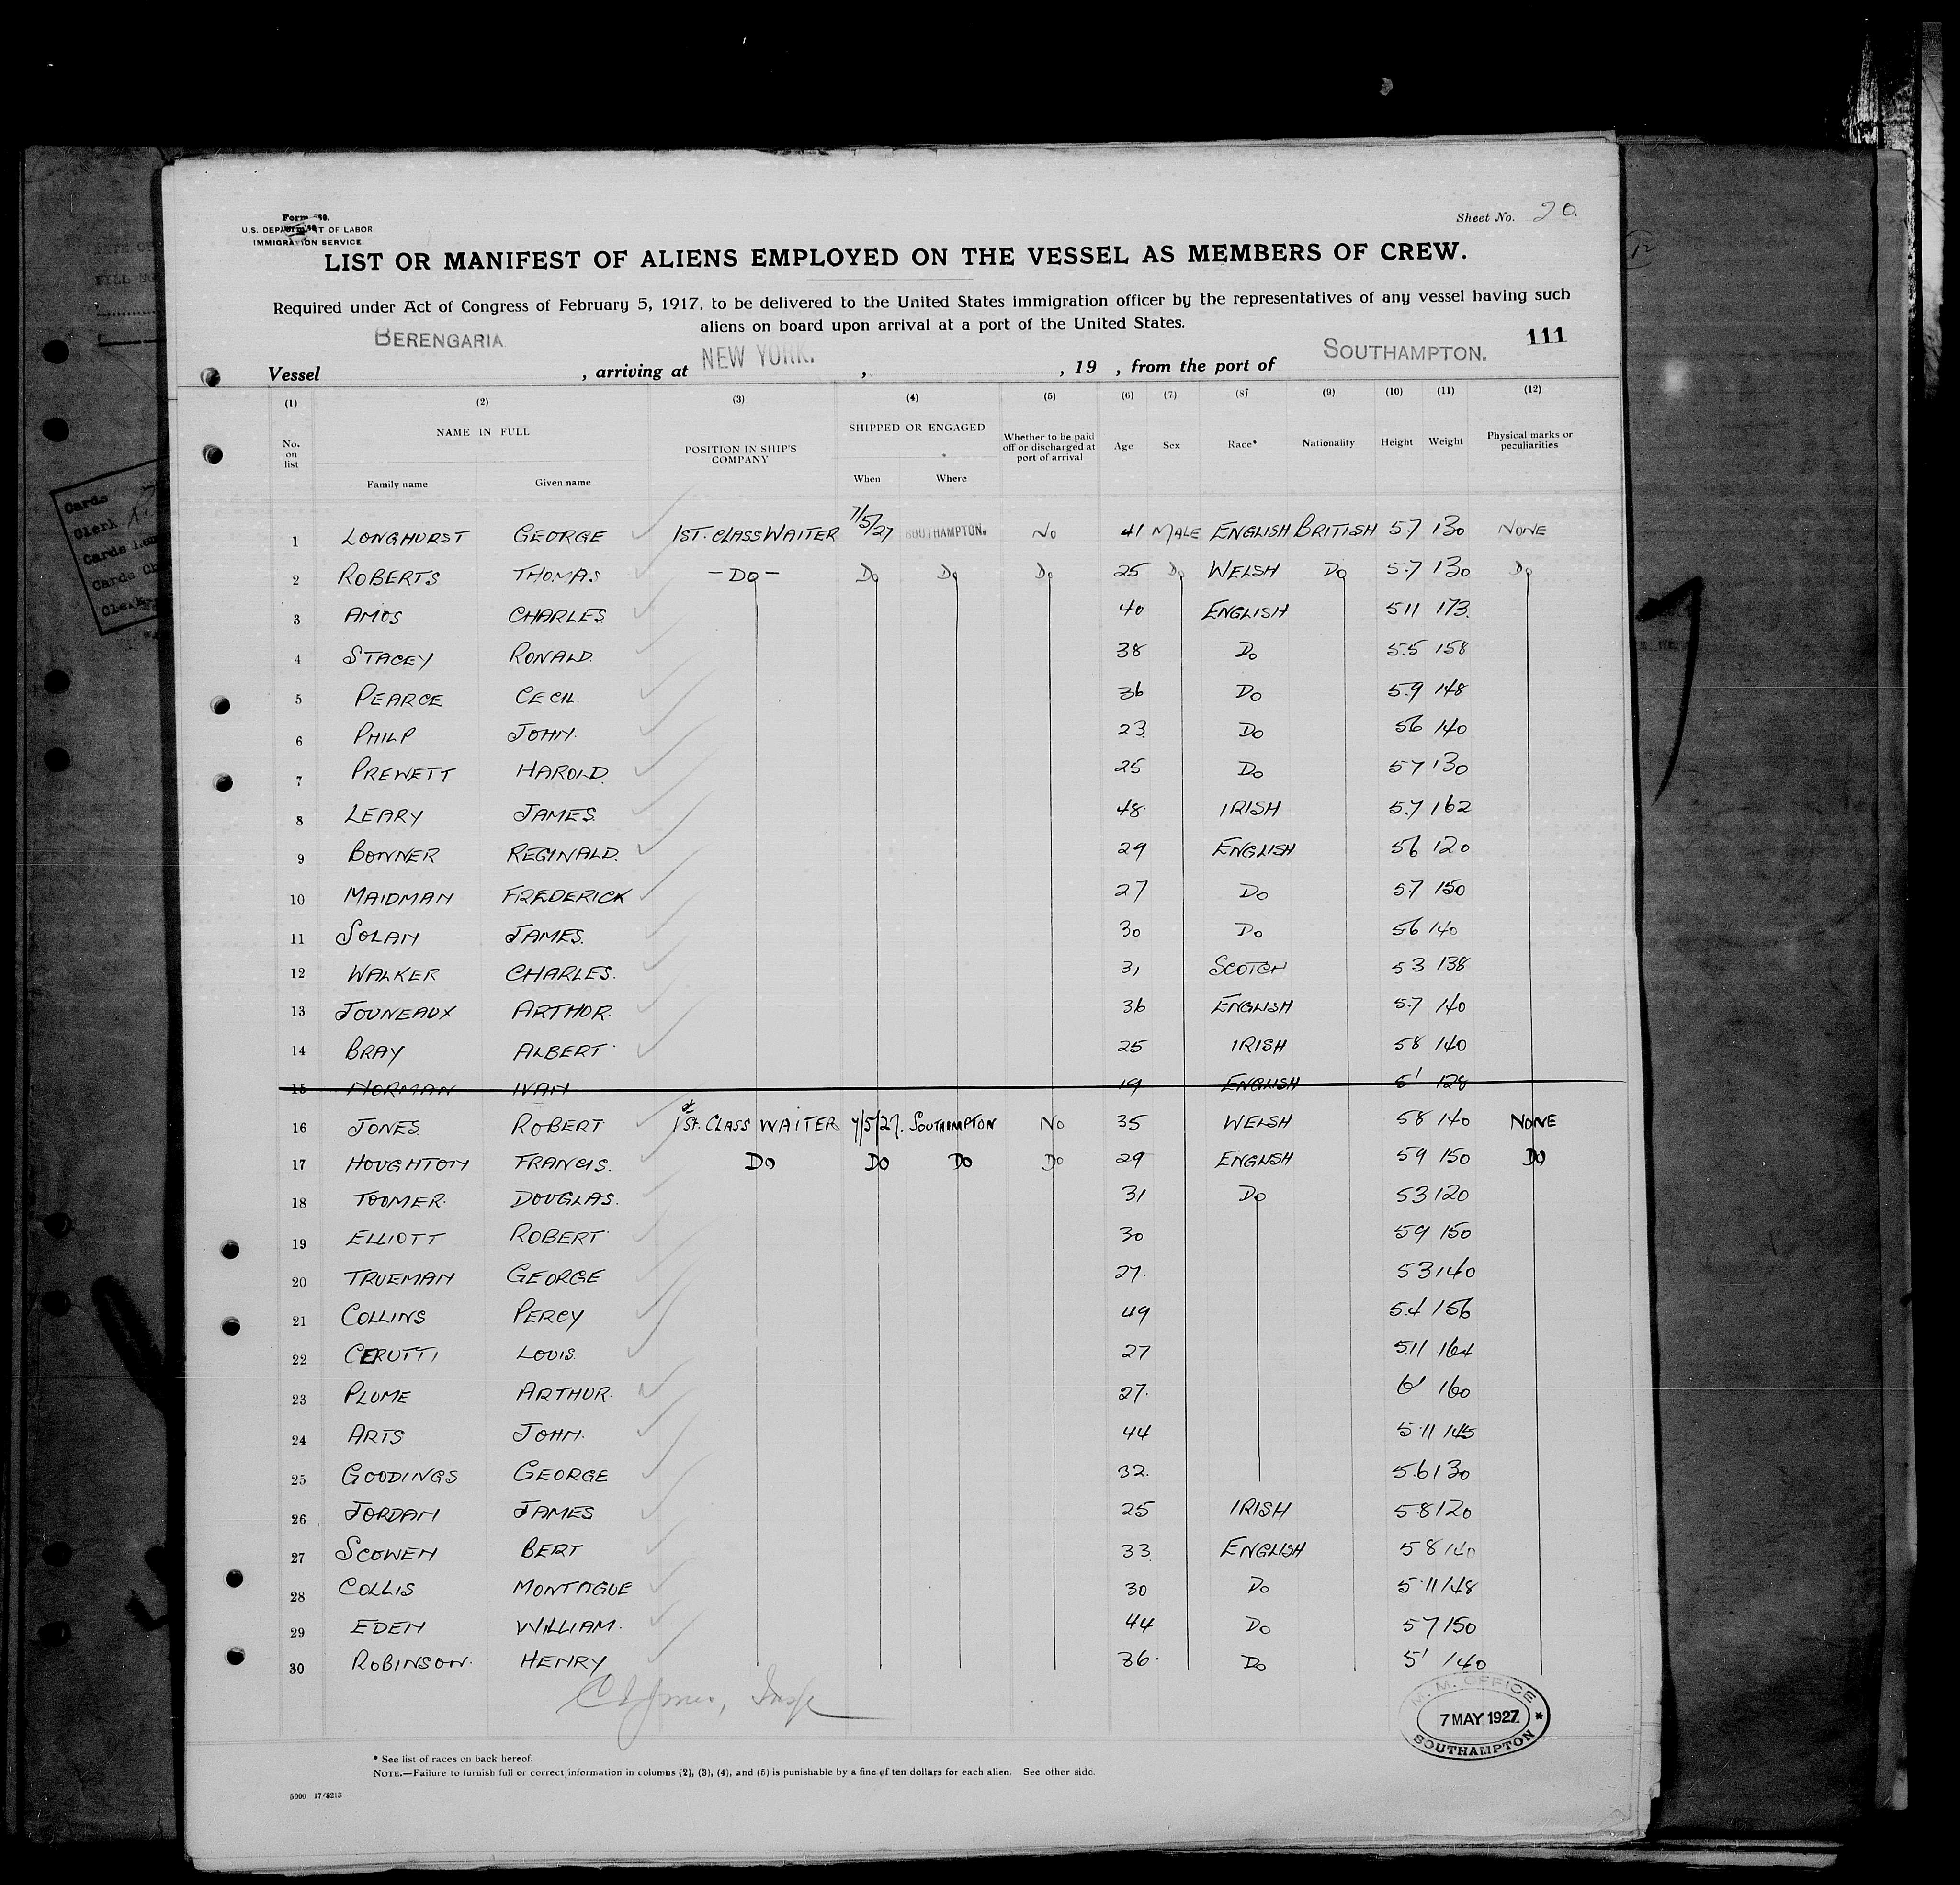 Sheet No. 20.
U.S. DEPARTMENT OF LABOR
IMMIGRATION SERVICE
LIST OR MANIFEST OF ALIENS EMPLOYED ON THE VESSEL AS MEMBERS OF CREW.
Required under Act of Congress of February 5, 1917, to be delivered to the United States immigration officer by the representatives of any vessel having such
aliens on board upon arrival at a port of the United States.
111
Vessel BERENGARIA, arriving at NEW YORK. , , 19 , from the port of SOUTHAMPTON.
(1) (2) (3) (4) (5) (6) (7) (8) (9) (10) (11) (12)
No. on list NAME IN FULL Family name Given name POSITION IN SHIP'S COMPANY SHIPPED OR ENGAGED When Where Whether to be paid off or discharged at port of arrival Age Sex Race* Nationality Height Weight Physical marks or peculiarities
1 LONGHURST GEORGE 1ST. CLASS WAITER 7/5/27 SOUTHAMPTON. No 41 MALE ENGLISH BRITISH 5.7 130 NONE
2 ROBERTS THOMAS - DO - DO DO DO 25 DO WELSH DO 5.7 130 DO
3 AMOS CHARLES 40 ENGLISH 5 11 173.
4 STACEY RONALD. 38 DO 5.5 158
5 PEARCE CECIL. 36 DO 5.9 148
6 PHILP JOHN. 23. DO 5 6 140
7 PREWETT HAROLD. 25 DO 5 7 130
8 LEARY JAMES. 48. IRISH 5.7 162
9 BONNER REGINALD. 29 ENGLISH 5 6 120
10 MAIDMAN FREDERICK 27 DO 5 7 150
11 SOLAN JAMES. 30 DO 5 6 140
12 WALKER CHARLES. 31 SCOTCH 5 3 138
13 JOUNEAUX ARTHUR. 36 ENGLISH 5.7 140
14 BRAY ALBERT 25 IRISH 5 8 140
15 NORMAN IVAN 19 ENGLISH 5' 128
16 JONES. ROBERT 1ST. CLASS WAITER 7/5/27. SOUTHAMPTON No 35 WELSH 5 8 140 NONE
17 HOUGHTON FRANCIS. DO DO DO DO 29 ENGLISH 5 9 150 DO
18 TOOMER. DOUGLAS. 31 DO 5 3 120
19 ELLIOTT ROBERT 30 5 9 150
20 TRUEMAN GEORGE 27. 5 3 140
21 COLLINS PERCY 49 5.4 156
22 CERUTTI LOUIS. 27 5.11 164
23 PLUME ARTHUR. 27. 6' 160
24 ARTS JOHN. 44 5.11 145
25 GOODINGS GEORGE 32. 5.6 130
26 JORDAN JAMES 25 IRISH 5.8 120
27 SCOWEN BERT 33. ENGLISH 5 8 140
28 COLLIS MONTAGUE 30 DO 5.11 148
29 EDEN WILLIAM. 44 DO 5 7 150
30 ROBINSON. HENRY 36. DO 5' 140
M. M. OFFICE
7 MAY 1927
SOUTHAMPTON
* See list of races on back hereof.
NOTE.—Failure to furnish full or correct information in columns (2), (3), (4), and (5) is punishable by a fine of ten dollars for each alien. See other side.